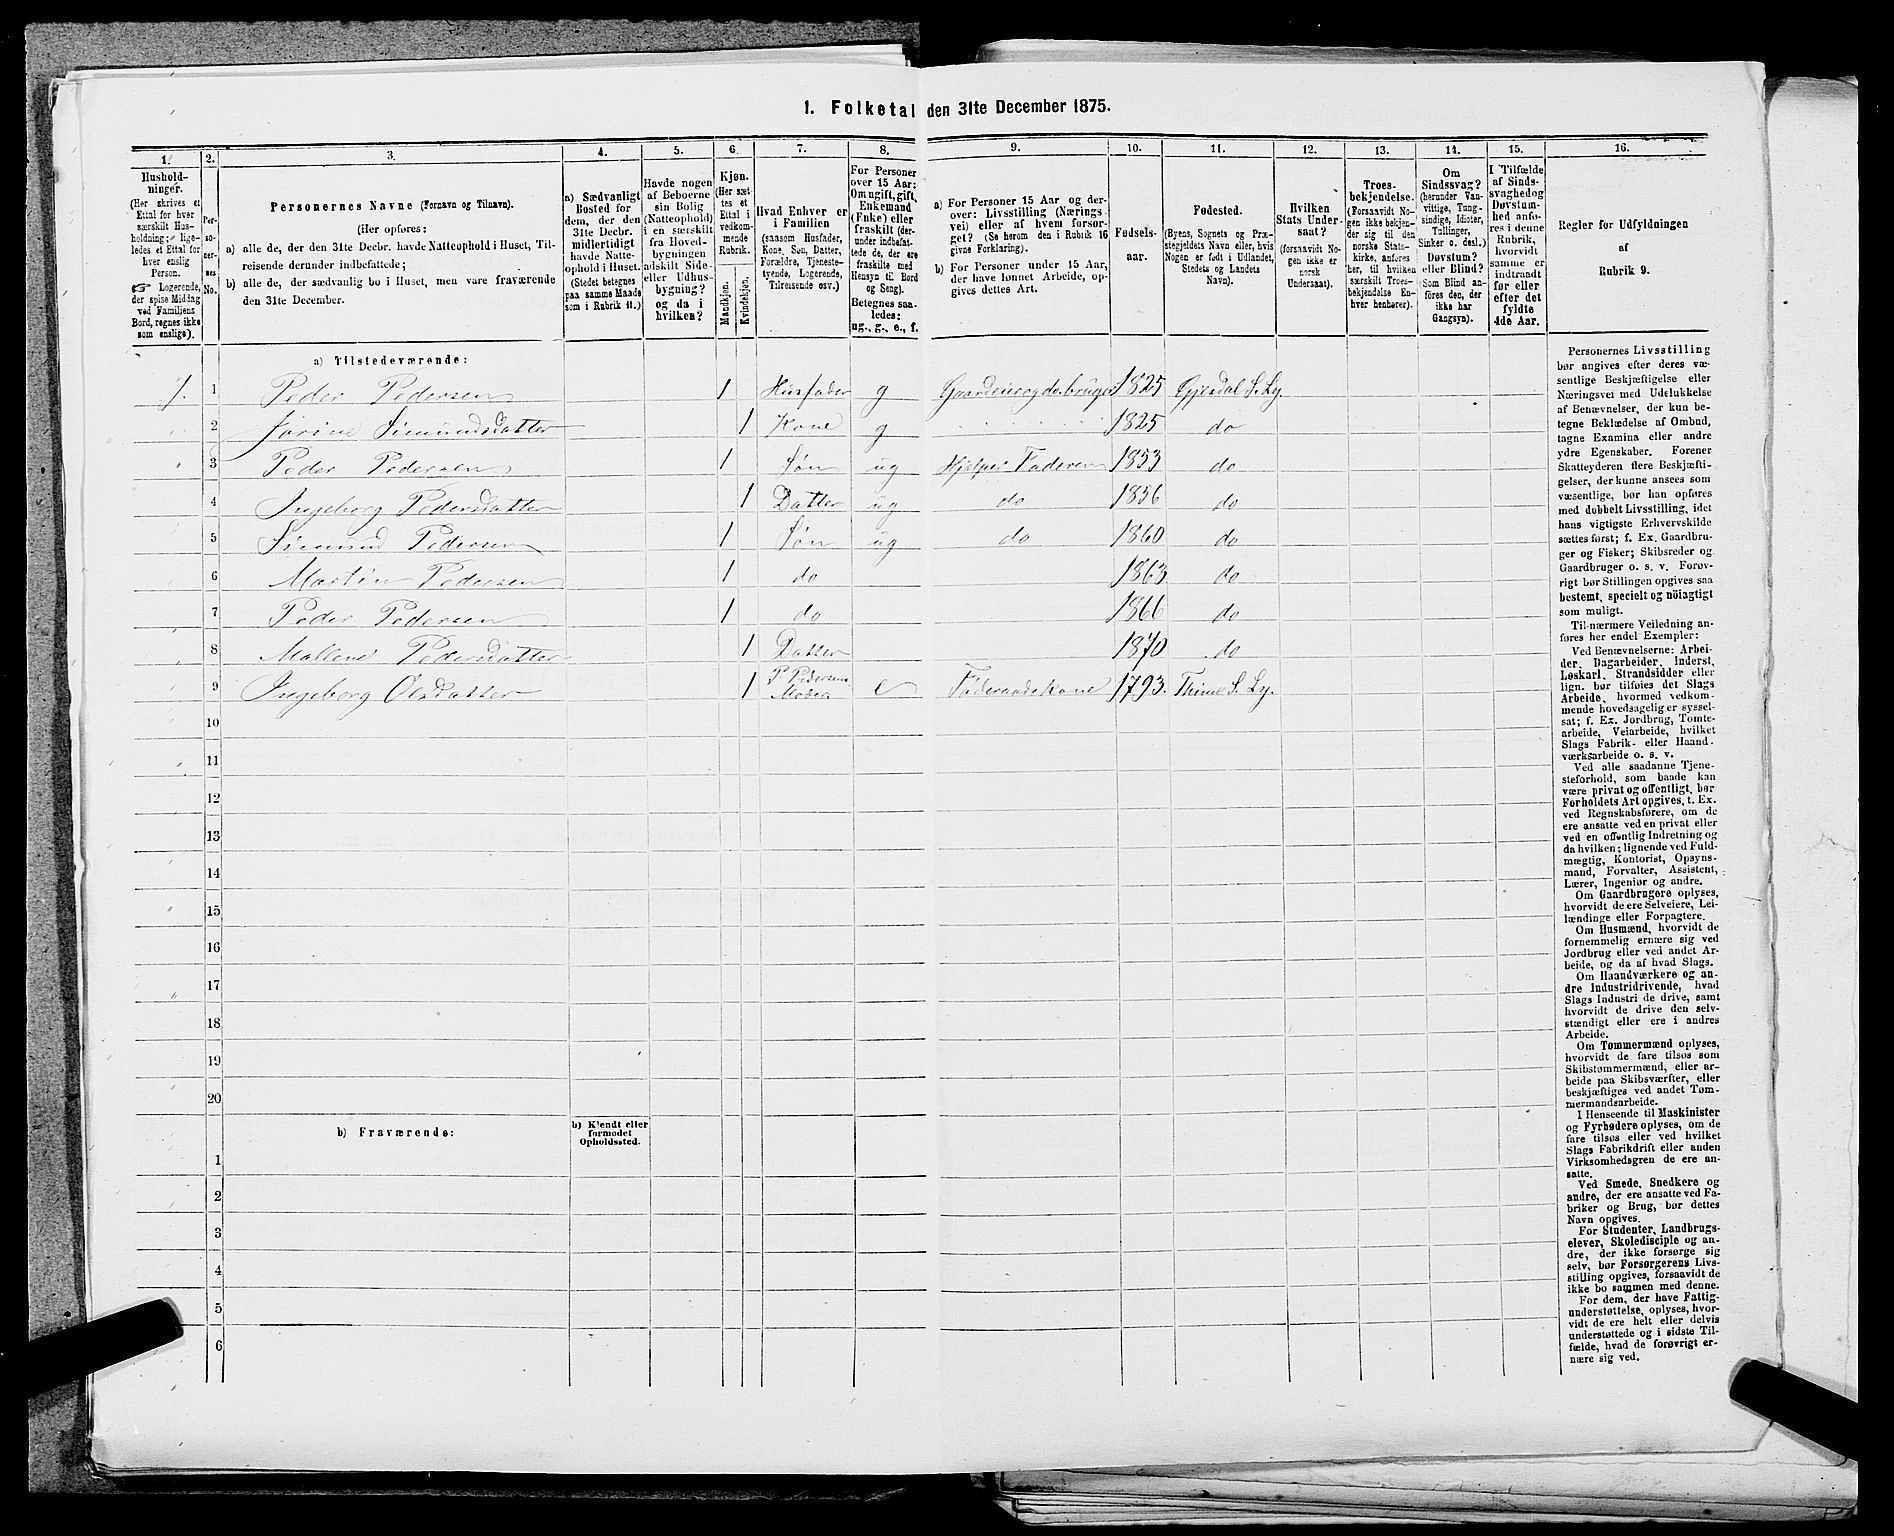 1. Folketal den 31te December 1875.
1. 2. 3. 4. 5. 6. 7. 8. 9. 10. 11. 12. 13. 14. 15. 16.
Hushold-
ninger.
(Her skrives et
Ettal for hver
særskilt Hus-
holdning; lige-
ledes et Ettal for
hver enslig
Person.
☞ Logerende,
der spise Middag
ved Familiens
Bord, regnes ikke
som enslige).
Per-
so-
ner-
nes
No.
Personernes Navne (Fornavn og Tilnavn).
(Her opføres:
a) alle de, der den 31te Decbr. havde Natteophold i Huset, Til-
reisende derunder indbefattede;
b) alle de, der sædvanlig bo i Huset, men vare fraværende
den 31te December.
a) Sædvanligt
Bosted for
dem, der den
31te Decbr.
midlertidigt
havde Natte-
ophold i Huset.
(Stedet betegnes
paa samme Maade
som i Rubrik 11.)
Havde nogen
af Beboerne
sin Bolig
(Natteophold)
i en særskilt
fra Hoved-
bygningen
adskilt Side-
eller Udhus-
bygning?
og da i
hvilken?
Kjøn.
(Her sæt-
tes et
Ettal i
vedkom-
mende
Rubrik.
Mandkjøn.
Kvindekjøn.
Hvad Enhver er
i Familien
(saasom Husfader,
Kone, Søn, Datter,
Forældre, Tjeneste-
tyende, Logerende,
Tilreisende osv.)
For Personer
over 15 Aar:
Om ugift, gift,
Enkemand
(Enke) eller
fraskilt (der-
under indbefat-
tede de, der ere
fraskilte med
Hensyn til Bord
og Seng).
Betegnes saa-
ledes:
ug., g., e., f.
a) For Personer 15 Aar og der-
over: Livsstilling (Nærings-
vei) eller af hvem forsør-
get? (Se herom den i Rubrik 16
givne Forklaring).
b) For Personer under 15 Aar,
der have lønnet Arbeide, op-
gives dettes Art.
Fødsels-
aar.
Fødested.
(Byens, Sognets og Præ-
stegjeldets Navn eller, hvis
Nogen er født i Udlandet,
Stedets og Landets
Navn).
Hvilken
Stats Under-
saat?
(forsaavidt No-
gen ikke er
norsk
Undersaat).
Troes-
bekjendelse.
(Forsaavidt No-
gen ikke bekjen-
der sig til den
norske Stats-
kirke, anføres
her, til hvilken
særskilt Troes-
bekjendelse En-
hver henhører).
Om
Sindssvag?
(herunder Van-
vittige, Tung-
sindige, Idioter,
Tullinger,
Sinker o. desl.)
Døvstum?
eller Blind?
(Som Blind an-
føres den, der
ikke har
Gangsyn).
I Tilfælde
af Sinds-
svaghed og
Døvstum-
hed anfø-
res i denne
Rubrik,
hvorvidt
samme er
indtraadt
før eller
efter det
fyldte
4de Aar.
Regler for Udfyldningen
af
Rubrik 9.
a) Tilstedeværende:
1. 1 Peder Pedersen 1 Husfader g Gaardeier og do. bruger 1825 Gjesdal S. Ly.
2 Jorine Simundsdatter 1 Kone g 1825 do
3 Peder Pedersen 1 Søn ug Hjelper Faderen 1853 do
4 Ingeborg Pedersdatter 1 Datter ug do 1856 do
5 Simund Pedersen 1 Søn ug do 1860 do
6 Martin Pedersen 1 do 1863 do
7 Peder Pedersen 1 do 1866 do
8 Mallene Pedersdatter 1 Datter 1870 do
9 Ingeborg Olsdatter 1 P. Pedersens Moder e Foderaadskone 1793. Thime S. Ly.
10
11
12
13
14
15
16
17
18
19
20
b) Fraværende:
b) Kjendt eller
formodet
Opholdssted.
1
2
3
4
5
6
Personernes Livsstilling
bør angives efter deres væ-
sentlige Beskjæftigelse eller
Næringsvei med Udelukkelse
af Benævnelser, der kun be-
tegne Beklædelse af Ombud,
tagne Examina eller andre
ydre Egenskaber. Forener
Skatteyderen flere Beskjæfti-
gelser, der kunne ansees som
væsentlige, bør han opføres
med dobbelt Livsstilling, idet
hans vigtigste Erhvervskilde
sættes først; f. Ex. Gaardbru-
ger og Fisker; Skibsreder og
Gaardbruger o. s. v. Forøv-
rigt bør Stillingen opgives saa
bestemt, specielt og nöiagtigt
som muligt.
Til nærmere Veiledning an-
føres her endel Exempler:
Ved Benævnelserne: Arbei-
der, Dagarbeider, Inderst,
Løskarl, Strandsidder eller
lign. bør tilføies det Slags
Arbeide, hvormed vedkom-
mende hovedsagelig er syssel-
sat; f. Ex. Jordbrug, Tomte-
arbeide, Veiarbeide, hvilket
Slags Fabrik- eller Haand-
værksarbeide o. s. v.
Ved alle saadanne Tjene-
steforhold, som baade kan
være privat og offentligt, bør
Forholdets Art opgives, t. Ex.
ved Regnskabsførere, om de
ere ansatte ved en privat eller
ved en offentlig Indretning og
da hvilken; lignende ved Fuld-
mægtig, Kontorist, Opsyns-
mand, Forvalter, Assistent,
Lærer, Ingeniør og andre.
Om Gaardbrugere oplyses,
hvorvidt de ere Selveiere, Lei-
lændinge eller Forpagtere.
Om Husmænd, hvorvidt de
fornemmelig ernære sig ved
Jordbrug eller ved andet Ar-
beide, og da af hvad Slags.
Om Haandværkere og an-
dre Industridrivende, hvad
Slags Industri de drive, samt
hvorvidt de drive den selv-
stændigt eller ere i andres
Arbeide.
Om Tømmermænd oplyses,
hvorvidt de fare tilsøs som
Skibstømmermænd, eller ar-
beide paa Skibsværfter, eller
beskjæftiges ved andet Tøm-
mermandsarbeide.
I Henseende til Maskinister
og Fyrbødere oplyses, om de
fare tilsøs eller ved hvilket
Slags Fabrikdrift eller anden
Virksomhedsgren de ere an-
satte.
Ved Smede, Snedkere og
andre, der ere ansatte ved Fa-
briker og Brug, bør dettes
Navn opgives.
For Studenter, Landbrugs-
elever, Skoledisciple og an-
dre, der ikke forsørge sig
selv, bør Forsørgerens Livs-
stilling opgives, forsaavidt de
ikke bo sammen med denne.
For dem, der have Fattig-
understøttelse, oplyses, hvor-
vidt de ere helt eller delvis
understøttede og i sidste Til-
fælde, hvad de forøvrigt er-
nære sig ved.